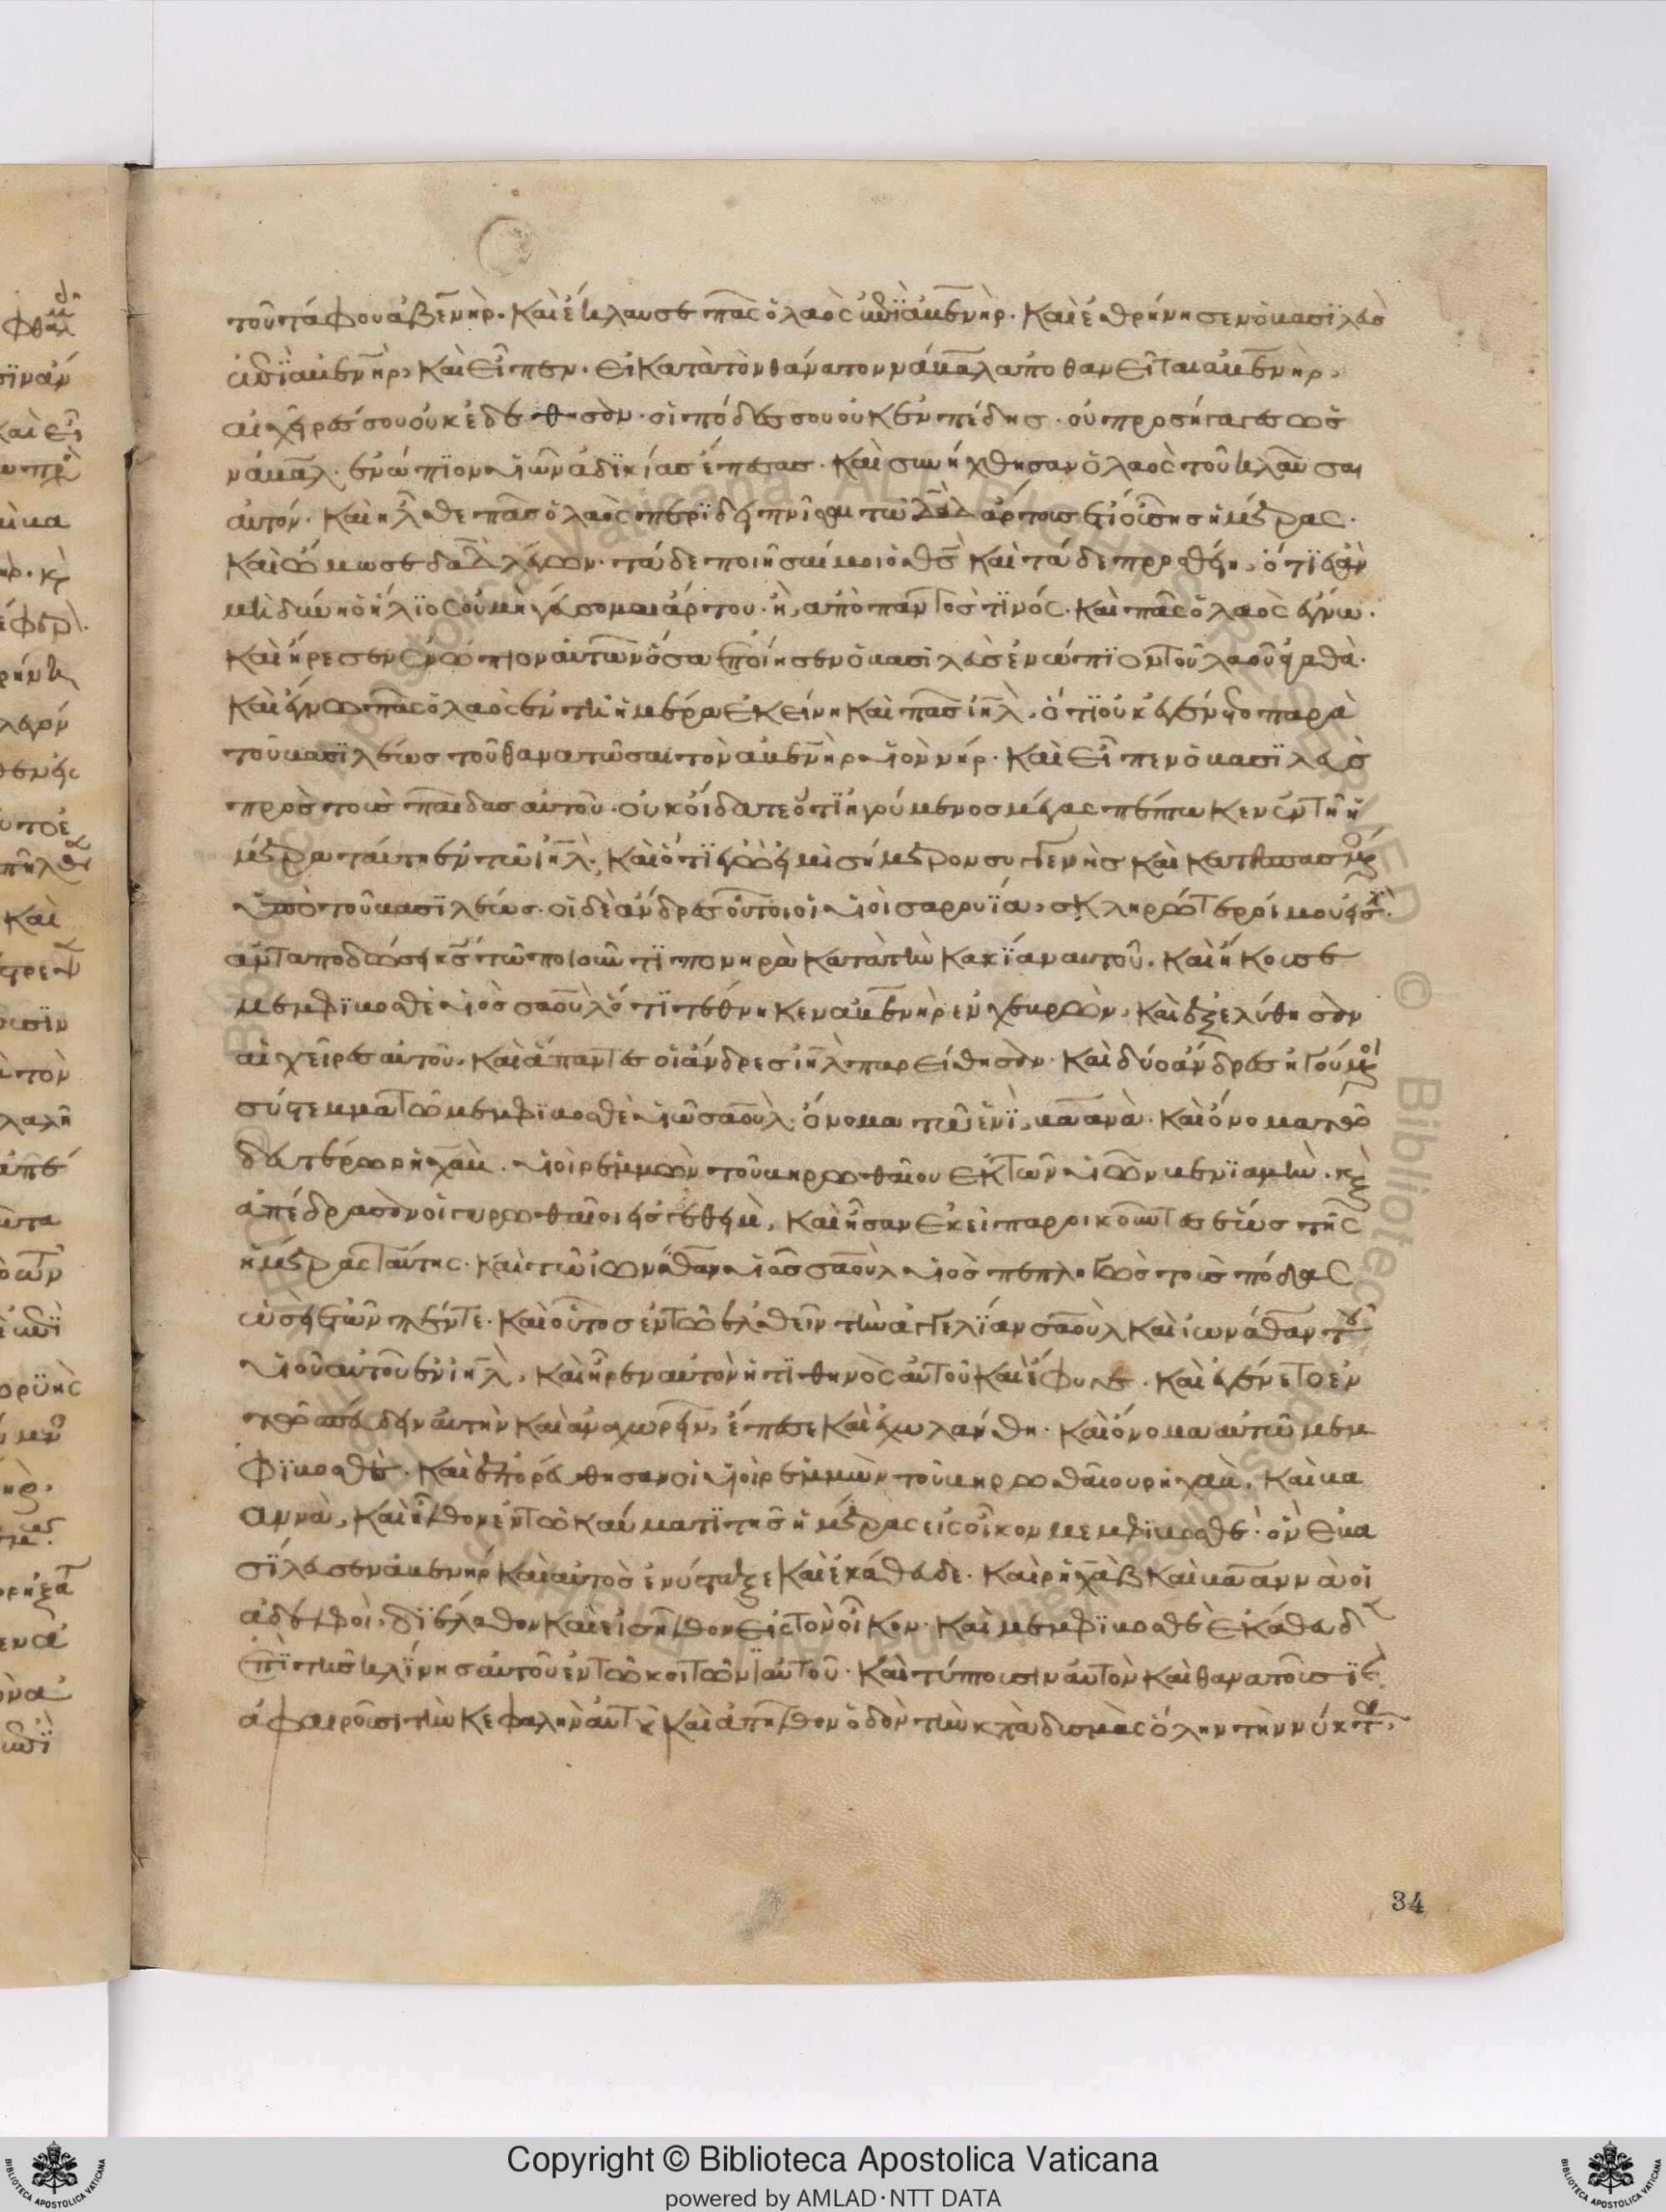 τοῦ τάφου ἀβεννήρ. καὶ ἔκλαυσε πᾶς ὁ λαὸς ἐπὶ ἀβεννήρ. καὶ ἐθρήνησεν ὁ βασϊλεὺς
ἐπὶ ἀβεννὴρ, καὶ εἶπεν. εἰ κατὰ τὸν θάνατον νάβαλ ἀποθανεῖται ἀβεννὴρ,
αἱ χεῖρές σου οὐκ ἐδέθησαν. οἱ πόδες σου οὐκ ἐν πέδης. οὐ προσήγαγες ὡς
νάβαλ. ἐνώπϊον υἱῶν ἀδϊκίας ἔπεσας. καὶ συνήχθησαν ὁ λαὸς τοῦ κλαῦσαι
αὐτόν. καὶ ἦλθε πᾶς ὁ λαὸς περϊδειπνῖσαι τῶ δᾱδ ἄρτοις ἔτι οὔσης ἡμέρας.
καὶ ὤμωσε δᾱδ λέγων. τάδε ποιῆσαί μοι ὁ θς̄ καὶ τάδε προσθείη, ὅτϊ ἐὰν
μὴ δύνη ὁ ἥλϊος οὐ μὴ γεύσομαι ἄρτου. ἢ ἀπὸ παντός τϊνός. καὶ πᾶς ὁ λαὸς ἔγνω.
καὶ ἤρεσεν ἐνώπιον αὐτῶν ὅσα ἐποίησεν ὁ βασιλεὺς ἐνώπϊον τοῦ λαοῦ ἀγαθά.
καὶ ἔγνω πᾶς ὁ λαὸς ἐν τῆ ἡμέρα ἐκείνη καὶ πᾶς ἰη̄λ, ὅτϊ οὐκ ἐγένετο παρὰ
τοῦ βασϊλέως τοῦ θανατῶσαι τὸν ἀβεννὴρ υἱὸν νήρ. καὶ εἶπεν ὁ βασϊλεὺς
πρὸς τοὺς παῖδας αὐτοῦ. οὐκ οἴδατε ὅτϊ ἡγούμενος μέγας πέπτωκεν ἐν τῆ ἡ
μέρα ταύτη ἐν τῶ ἰη̄λ, καὶ ὅτϊ ἐγώ εἰμι σήμερον συγγενὴς καὶ καθεσταμέ
ὑπὸ τοῦ βασϊλέως. οἱ δὲ ἄνδρες οὗτοι οἱ υἱοὶ σαρουΐας, σκληρότεροί μού εἰσϊ.
ἀνταποδώσει κς̄ τῶ ποιοῦντϊ πονηρὰ κατὰ τὴν κακίαν αὐτοῦ. καὶ ἤκουσε
μεμφϊβοσθὲ υἱὸς σαοὺλ ὅτϊ τέθνηκεν ἀβεννὴρ ἐν χευρών, καὶ ἐξελύθησαν
αἱ χεῖρες αὐτοῦ, καὶ ἅπαντες οἱ ἄνδρες ἰη̄λ παρείθησαν. καὶ δύο ἄνδρες ἡγούμεν
σύστεμμάτων μεμφϊβοσθὲ υἱῶ σαούλ. ὄνομα τῶ ἑνὶ, βαανά. καὶ ὄνομα τῶ
δευτέρω ρηχάβ. υἱοὶ ρεμμὼν τοῦ βηρωθαίου ἐκ τῶν υἱῶν βενϊαμὴν. κὲ
ἀπέδρασαν οἱ βυρωθαῖοι εἰς γεθαὶμ, καὶ ἦσαν ἐκεῖ παροικοῦντες ἕως τῆς
ἡμέρας ταύτης. καὶ τῶ ἰωνάθαν υἱὸς σαοὺλ υἱὸς πεπληγὼς τοὺς πόδας
ὡς εἰ ἐτῶν πέντε. καὶ οὗτος ἐν τῶ ἐλθεῖν τὴν ἀγγελϊαν σαοὺλ καὶ ἰωνάθαν τοῦ
υἱοῦ αὐτοῦ ἐν ἰη̄λ, καὶ ἦρεν αὐτὸν ἡ τϊθηνὸς αὐτοῦ καὶ ἔφυγε. καὶ ἐγένετο ἐν
τῶ σπεύδειν αὐτὴν καὶ ἀναχωρεῖν, ἔπεσε καὶ ἐχωλάνθη. καὶ ὄνομα αὐτῶ μεμ
φϊβοσθέ. καὶ ἐπορεύθησαν οἱ υἱοὶ ρεμμὼν τοῦ βηρωθαίου ρηχάβ, καὶ βα
αννὰ, καὶ ἦλθον ἐν τῶ καύματϊ τῆς ἡμέρας εἰς οἶκον μεμφϊβοσθέ. ὃν ἐβα
σϊλευσεν ἀβεννήρ καὶ αὐτὸς ἐνύσταξε καὶ ἐκάθευδε. καὶ ρηχὰβ καὶ βααννὰ οἱ
ἀδελφοὶ, δϊέλαθον καὶ εἰσῆλθον εἰς τὸν οἶκον. καὶ μεμφϊβοσθὲ ἐκάθευδ
ἐπϊ τῆς κλϊνης αὐτοῦ ἐν τῶ κοιτῶνϊ αὐτοῦ. καὶ τύπτουσιν αὐτὸν καὶ θανατοῦσϊ κ
ἀφαιροῦσι τὴν κεφαλὴν αὐτοῦ καὶ ἀπῆλθον ὁδὸν τὴν κατὰ δυσμὰς ὅλην τὴν νύκτα,
34
Copyright © Biblioteca Apostolica Vaticana
powered by AMLAD·NTT DATA